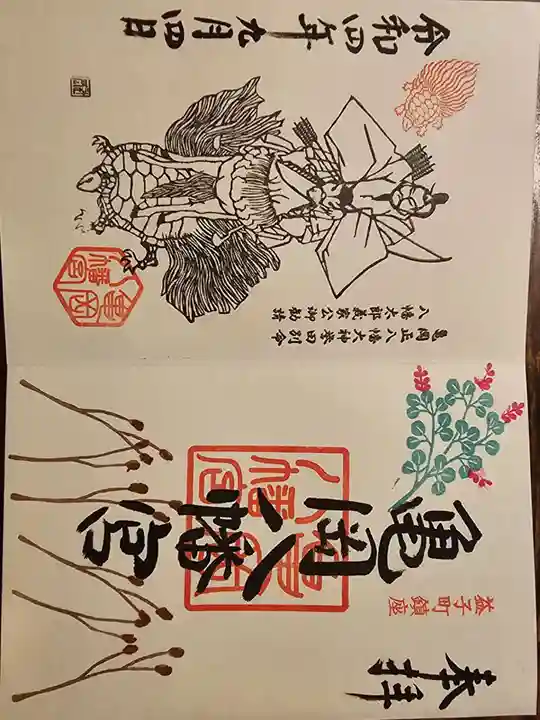 奉拝
益子町鎮座
亀岡八幡宮
亀岡八幡宮
亀岡正八幡大神誉田別命
八幡太郎義家公御勧請
亀岡八幡宮
令和四年九月四日